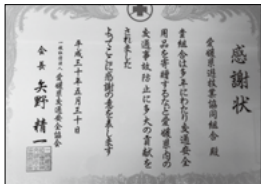 感謝状
愛媛県遊技業協同組合 殿
貴組合は多年にわたり交通安全
用品を寄贈するなど愛媛県内の
交通事故防止に多大の貢献を
されました
よってここに感謝の意を表します
平成三十年五月三十日
一般財団法人愛媛県交通安全協会
会長 矢野精一